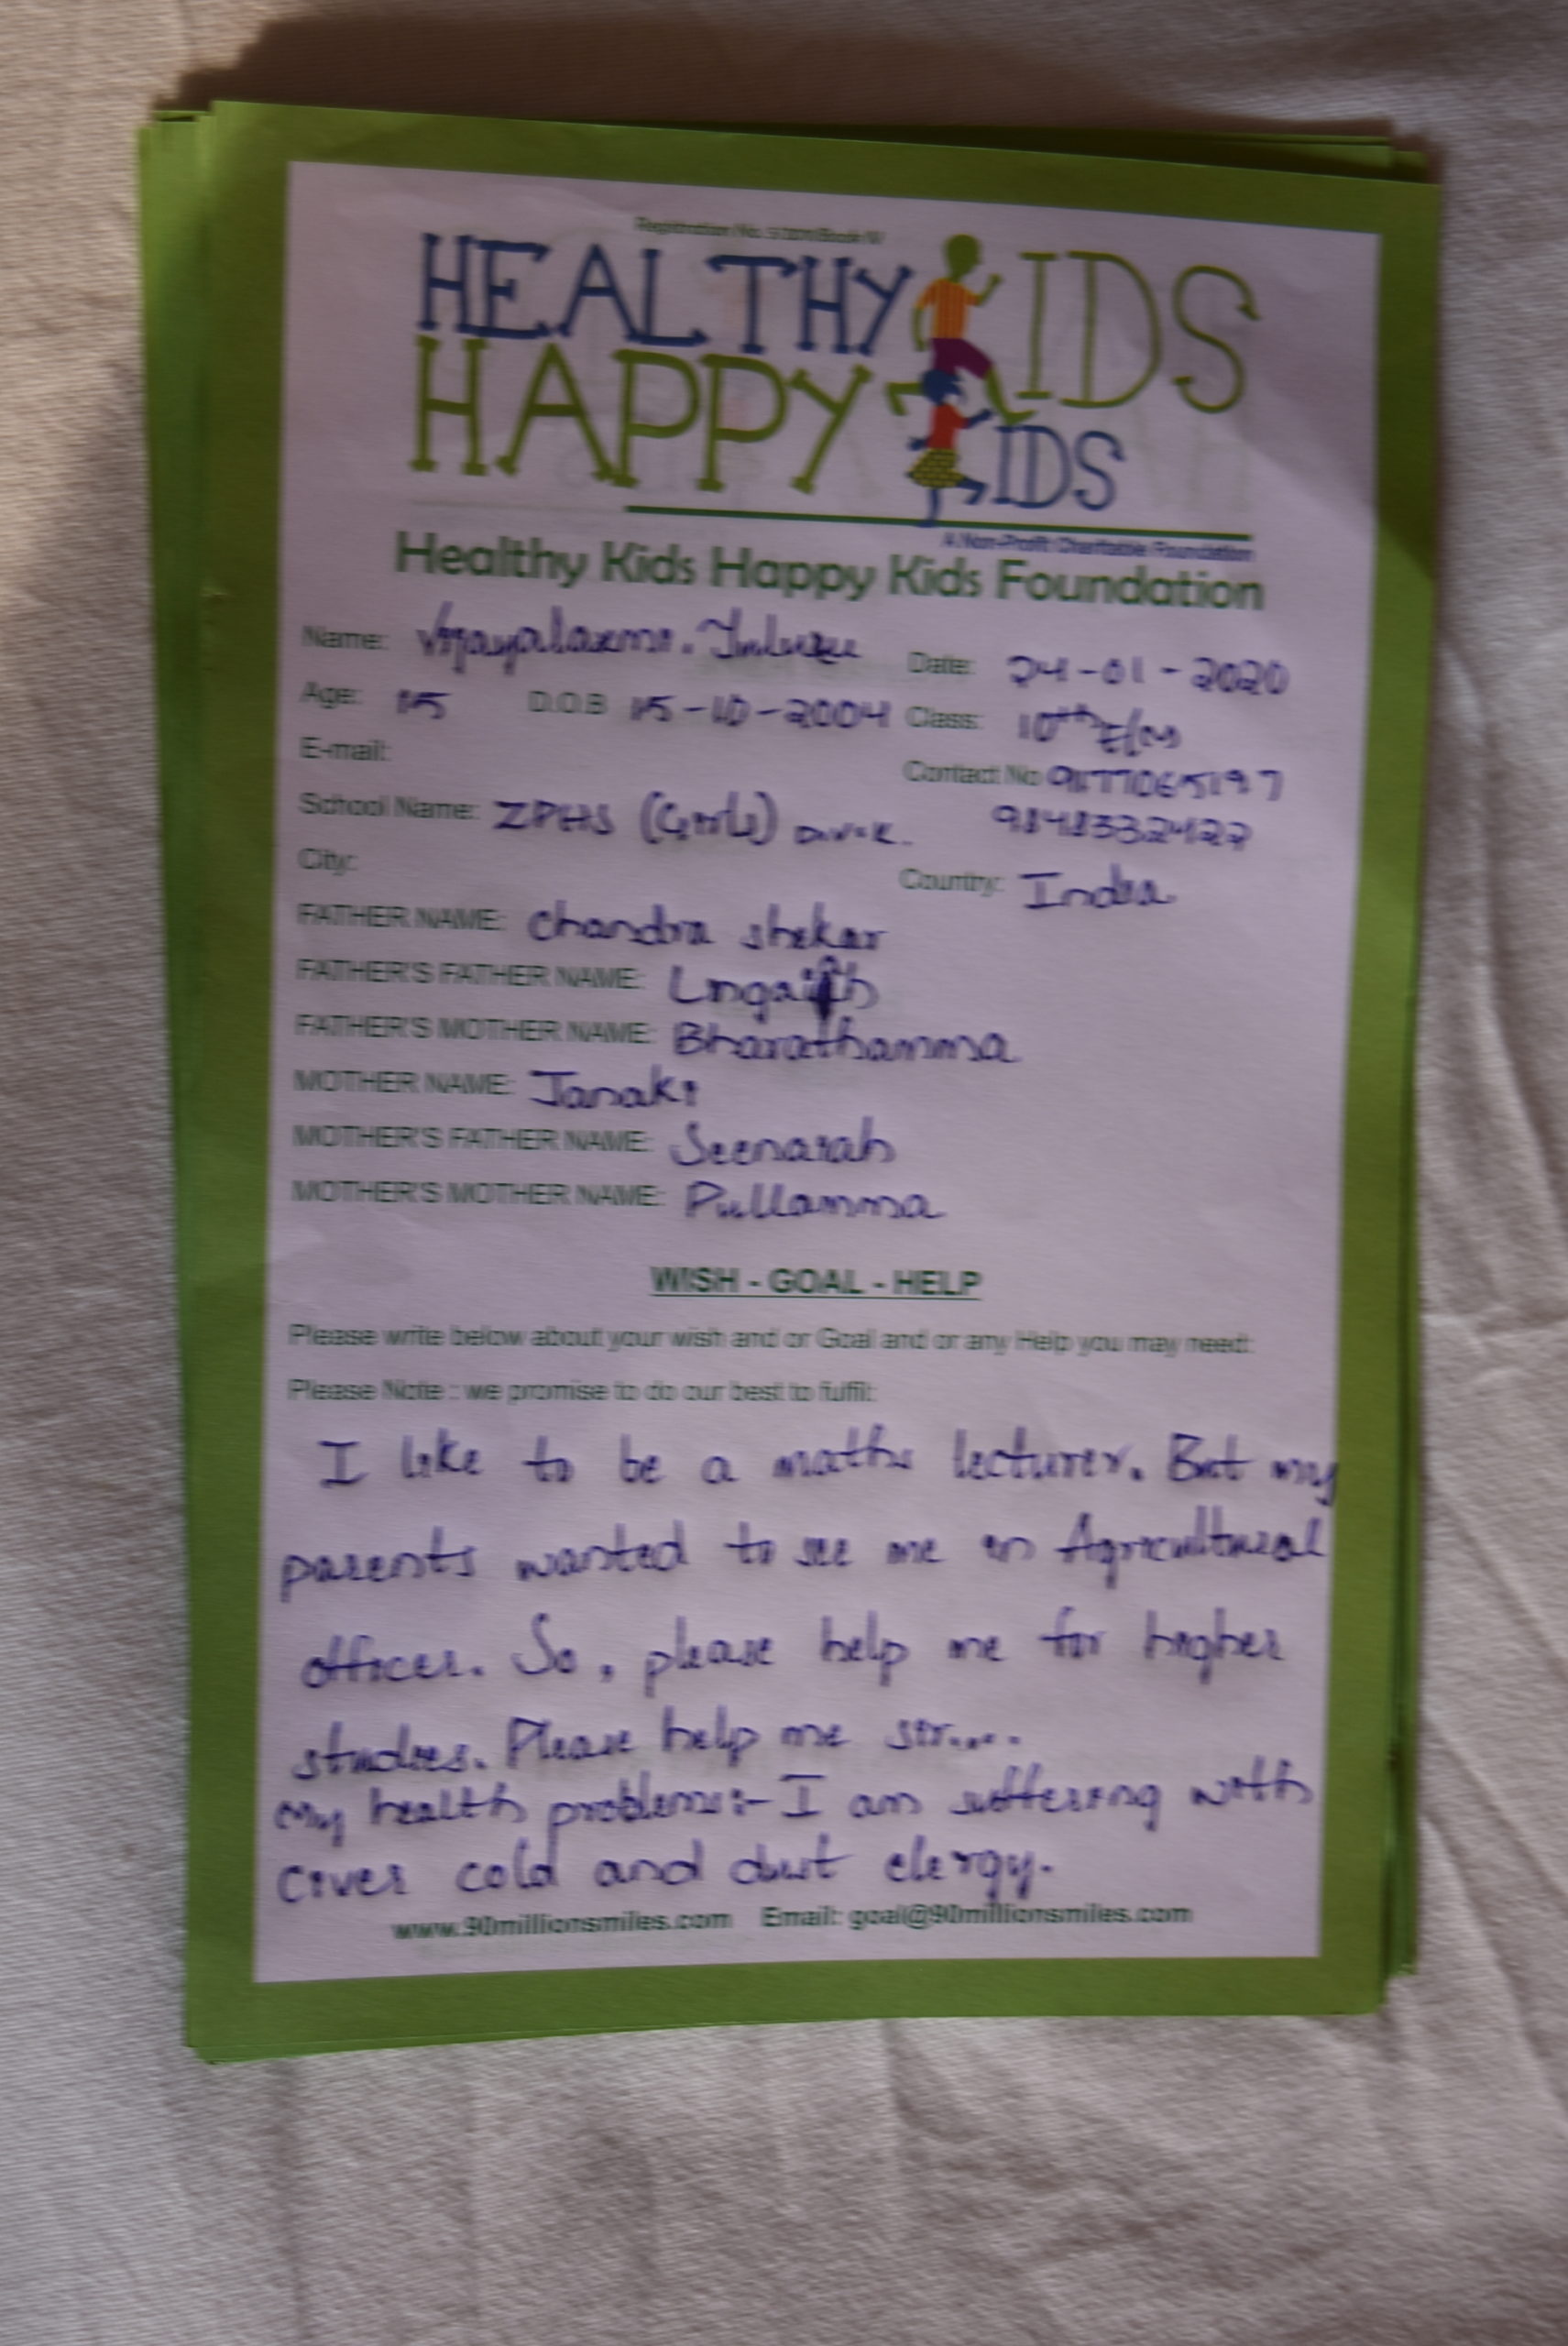 HEALTHY KIDS
HAPPY KIDS
A Non-Profit Charitable Foundation
Healthy Kids Happy Kids Foundation
Name: Date: 24-01-2020
Age: 15 D.O.B 15-10-2004 Class: 10th E/M
E-mail: Contact No 9177065197
School Name: ZPHS (Girls) 9848332422
City: Country: India
FATHER NAME: Chandra shekar
FATHER'S FATHER NAME:
FATHER'S MOTHER NAME: Bharathamma
MOTHER NAME: Janaki
MOTHER'S FATHER NAME: Seenaiah
MOTHER'S MOTHER NAME: Pullamma
WISH - GOAL - HELP
Please write below about your wish and or Goal and or any Help you may need:
Please Note : we promise to do our best to fulfil:
I like to be a maths lecturer. But my
parents wanted to see me in Agricultural
officer. So, please help me for higher
studies. Please help me sir....
My health problems:- I am suffering with
cold and dust elergy.
www.90millionsmiles.com Email: goal@90millionsmiles.com